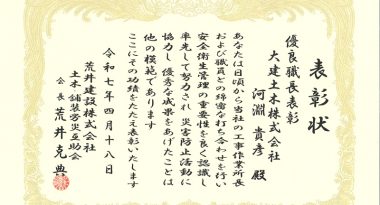 表彰状
優良職長表彰
大建土木株式会社
河淵 貴彦 殿
あなたは日頃から当社の工事作業所長
および職員との綿密な打ち合わせを行い
安全衛生管理の重要性を良く認識し
率先して努力され 災害防止活動に
協力し 優秀な成果をあげたことは
他の模範であります
ここにその功績をたたえ表彰いたします
令和七年四月十八日
荒井建設株式会社
土木・舗装労災互助会
会長 荒井克典